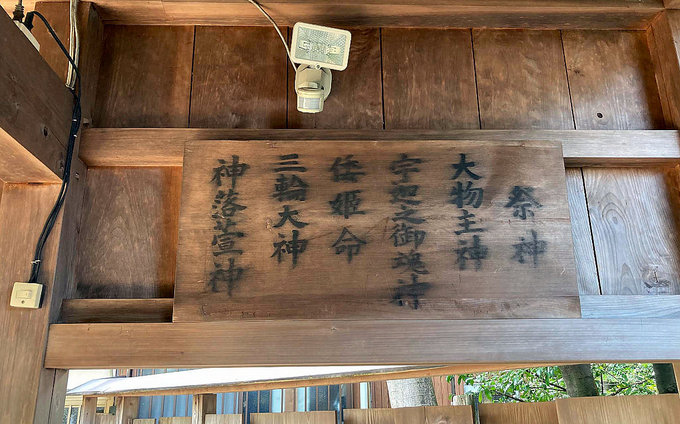 祭神
大物主神
宇迦之御魂神
倭姫命
三輪大神
神落萱神